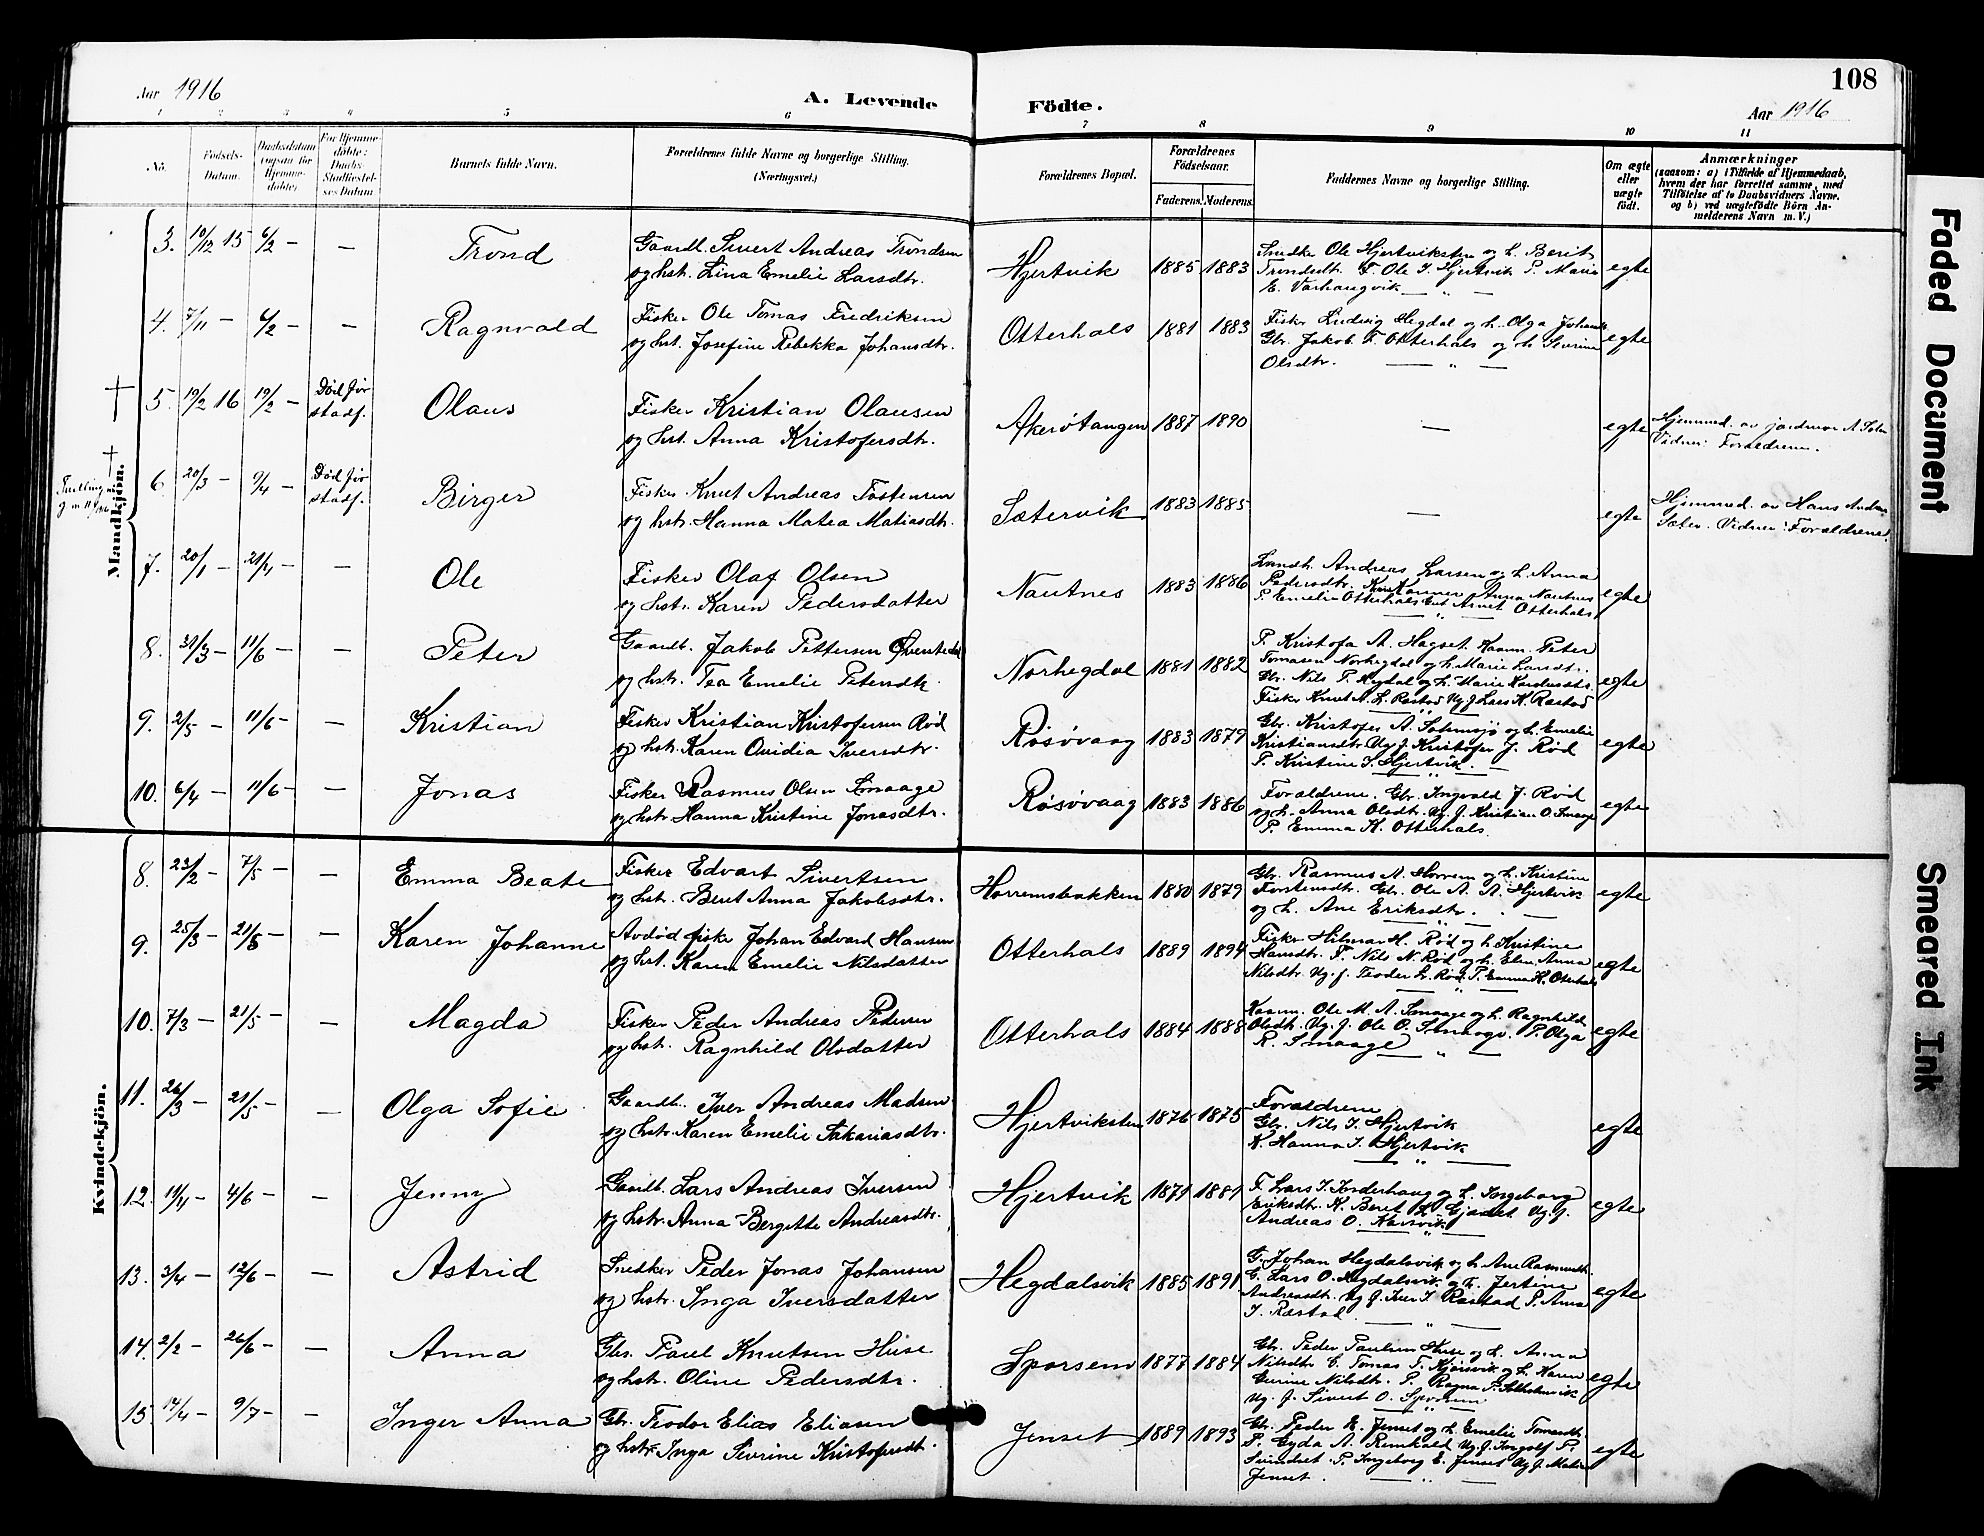 108
Aar 1916
A. Levende Födte.
Aar 1916
1 2 3 4 5 6 7 8 9 10 11
No.
Födsels-Datum.
Daabsdatum (ogsaa for Hjemmedöbte)
For Hjemmedöbte: Daabs-Stadfæstelses Datum
Barnets fulde Navn.
Forældrenes fulde Navne og borgerlige Stilling. (Næringsvei.)
Forældrenes Bopæl.
Forældrenes Födselsaar.
Faderens. Moderens.
Faddernes Navne og borgerlige Stilling.
Om ægte eller uægte födt.
Anmærkninger
(saasom: a) i Tilfælde af Hjemmedaab,
hvem der har forrettet samme, med
Tilföielse af to Daabsvidners Navne.
og b) ved uægtefödte Börn Anmelderens Navn m. V.)
Mandkjön.
3. 19/12 15 6/2 — — Trond
Gaardb. Sivert Andreas Trondsen
og hst. Lina Emelie Larsdtr.
Hjertvik 1885 1883
Snedker Ole Hjertviksten og h. Berit
Trondsdtr. F. Ole I. Hjertvik P. Marie
E. Varhaugvik — „ —
egte
4. 7/11 — 6/2 — — Ragnvald
Fisker Ole Tomas Fredriksen
og hst. Josefine Rebekka Johansdtr.
Otterhals 1881 1883
Fisker Ludvig Hegdal og h. Olga
Gbr. Jakob F. Otterhals og h. Sivrine
Olsdtr. — „ —
egte
5. 19/2 16 19/2 — Død før stadf. Olaus
Fisker Kristian Olausen
og hst. Anna Kristofersdtr.
Akerøtangen 1887 1890
—
egte
Hjemmed. av jordmor A.
Vidner: Forældrene.
6. 20/3 — 9/4 — Død før stadf. Birger
Fisker Knut Andreas Tostensen
og hstr. Hanna Matea Matiasdtr.
Sætervik 1883 1885
—
egte
Hjemmed. av Hans
Sæter. Vidner: Forældrene.
7. 20/1 — — Ole
Fisker Olaf Olsen
og hstr. Karen Pedersdatter
Nautnes 1883 1886
Andreas Larsen og h. Anna
Pedersdtr. Anna Nautnes
P. Emelie Otterhals Arnet Otterhals
egte
8. 31/3 — 11/6 — — Peter
Gaardb. Jakob Pettersen
og hstr. Tea Emelie Petersdtr.
Norhegdal 1881 1882
P. Kristofa A. Hagset. Peter
Tomasen Norhegdal og h. Marie Larsdtr.
Gbr. Nils T. Hegdal og h. Marie
egte
9. 2/5 — 11/6 — — Kristian
Fisker Kristian Kristofersen Rød
og hstr. Karen Ovidia Iversdtr.
Røsøvaag 1883 1879
Fisker Knut A. L. Rastad Ug. J. Lars K. Rastad
Gbr. Kristofer A. Solemsjø og h. Emelie
Kristiansdtr. Ug. J. Kristofer J. Rød
P. Kristine I. Hjertvik. — „ —
egte
10. 6/4 — 11/6 — — Jonas
Fisker Rasmus Olsen Smaage
og hstr. Hanna Kristine Jonasdtr.
Røsøvaag 1883 1886
Forældrene. Gbr. Ingvald J. Rød
og h. Anna Olsdtr. Ug. J. Kristian O. Smaage
P. Emma K. Otterhals.
egte
Kvindekjön.
8. 23/2 — 7/5 — — Emma Beate
Fisker Edvart Sivertsen
og hstr. Beret Anna Jakobsdtr.
Horremsbakken 1880 1879
Gbr. Rasmus A. Horrem og h. Kristine
Torstensdtr. Gbr. Ole A. A. Hjertvik
og h. Ane Eriksdtr. — „ —
egte
9. 25/3 — 21/5 — — Karen Johanne
Avdød fiske Johan Edvard Hansen
og hst. Karen Emelie Nilsdatter
Otterhals 1889 1894
Fisker Hilmar H. Rød og h. Kristine
Hansdtr. F. Nils N. Rød og h. Elen Anna
Nilsdtr. Ug. J. Teodor L. Rød P. Emma K. Oterhals
egte
10. 7/3 — 21/5 — — Magda
Fisker Peder Andreas Pedersen
og hstr. Ragnhild Olsdatter
Otterhals 1884 1888
Ole M. A. Smaage og h. Ragnhild
Olsdtr. Ug. J. Ole O. Smaage. P. Olga
R. Smaage — „ —
egte
11. 26/3 — 21/5 — — Olga Sofie
Gaardb. Iver Andreas Madsen
og hstr. Karen Emelie Sakariasdtr.
Hjertviksten 1876 1875
Forældrene
Gbr. Nils I. Hjertvik
K. Hanna I. Hjertvik
— „ —
egte
12. 4/6 — — Jenny
Gaardb. Lars Andreas Iversen
og hstr. Anna Bergitte Andreasdtr.
Hjertvik 1881
F. Lars I. Inderhaug og h. Ingeborg
Eriksdtr. K. Beret L. Gjadet. Ug. J.
Andreas O. — „ —
egte
13. 3/4 — 12/6 — — Astrid
Snedker Peder Jonas Johansen
og hstr. Inga Iversdatter
Hegdalsvik 1885 1891
G. Johan Hegdalsvik og h. Ane Rasmusdtr.
G. Lars O. Hegdalsvik og h. Jertine
Andreasdtr. Ug. J. Iver I. Rastad P. Anna
I. Rastad. — „ —
egte
14. 2/2 — 26/6 — — Anna
Gbr. Paul Knutsen Huse
og hstr. Oline Pedersdtr.
Sporsem 1877 1884
Gbr. Peder Paulsen Huse og h. Anna
Nilsdtr. G. Tomas T. Kjørsvik og h. Karen
Gurine Nilsdtr. P. Ragna P.
Ug. J. Sivert O. Sporsem
egte
15. 14/4 — 9/7 — — Inger Anna
Gbr. Teodor Elias Eliasen
og hstr. Inga Sivrine Kristofersdtr.
Jenset 1889 1893
Gbr. Peder E. Jenset og h. Emelie Tomasdtr.
P. Gyda A. Remkald Ug. J. Ingolf P.
P. Ingeborg E. Jenset Ug. J.
Jenset. — „ —
egte
Faded Document
Smeared Ink